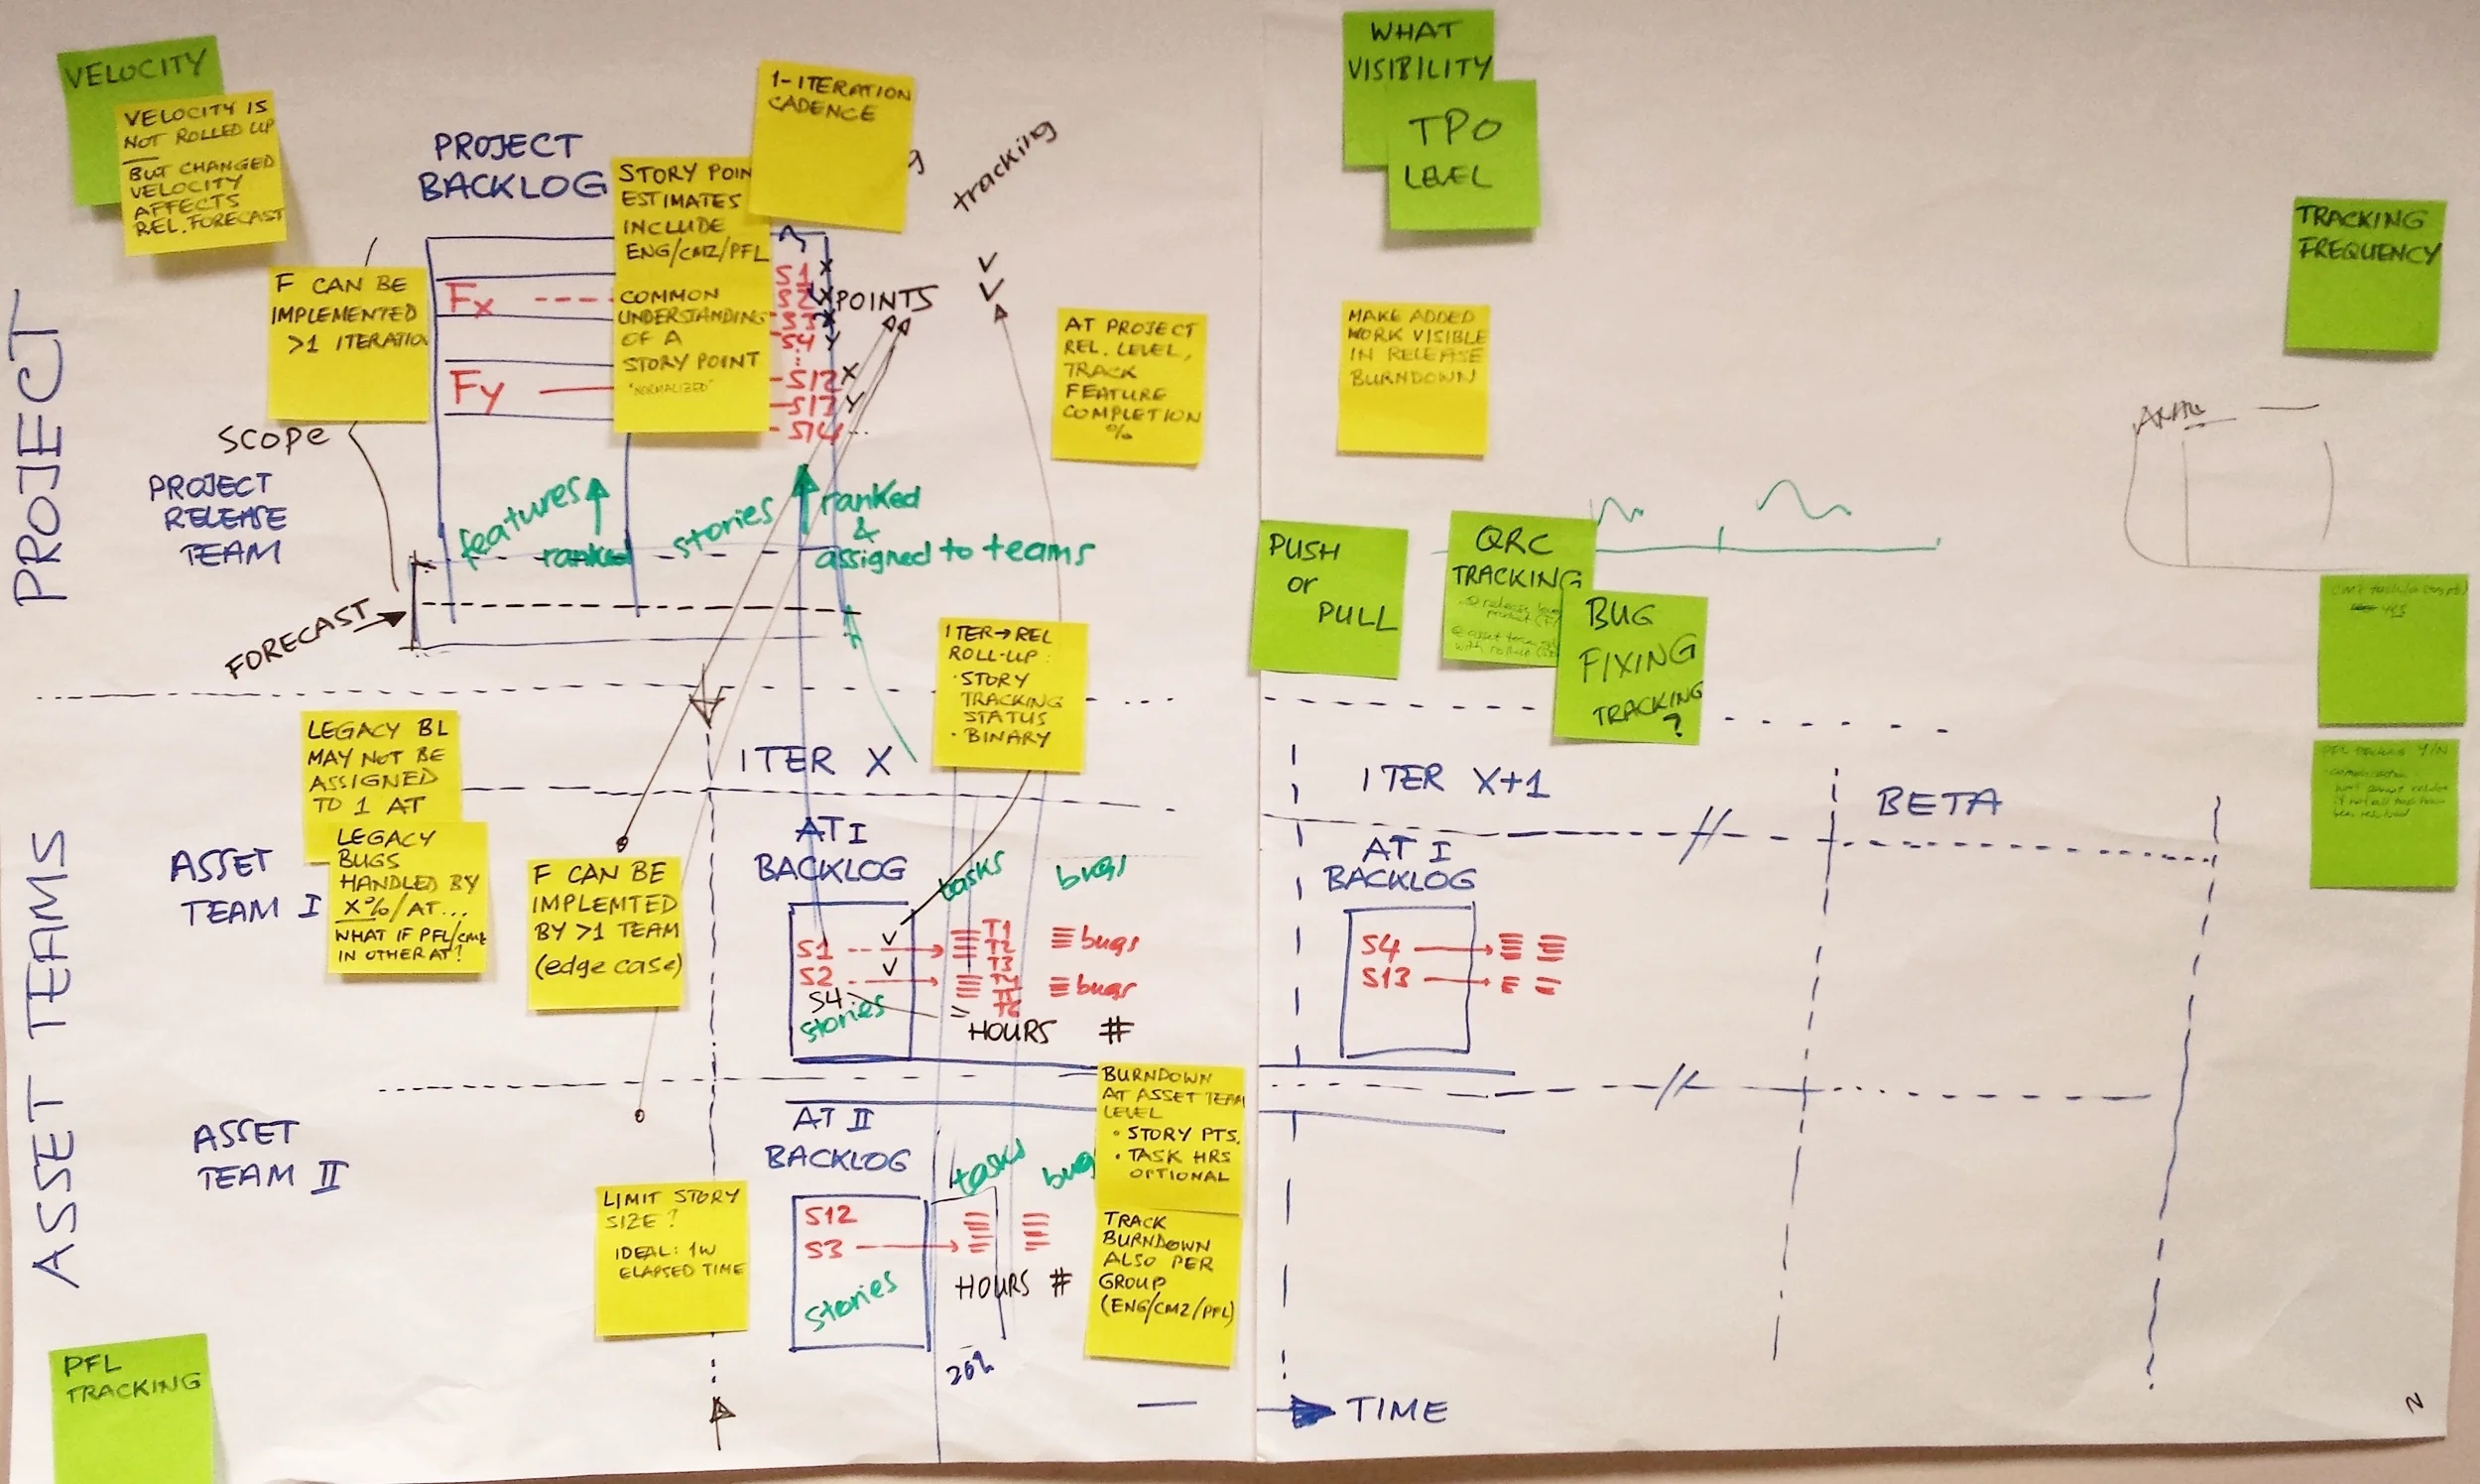 VELOCITY
VELOCITY IS
NOT ROLLED UP
BUT CHANGED
VELOCITY
AFFECTS
REL. FORECAST
PROJECT
BACKLOG
STORY POIN
ESTIMATES
INCLUDE
ENG/CMZ/PFL
COMMON
UNDERSTANDING
OF A
STORY POINT
"NORMALIZED"
1-ITERATION
CADENCE
g
tracking
WHAT
VISIBILITY
TPO
LEVEL
TRACKING
FREQUENCY
F CAN BE
IMPLEMENTED
>1 ITERATIO
Fx
Fy
S1 X
S2 X
S3
S4 Y
S12 X
S13 Y
S14 ...
POINTS
AT PROJECT
REL. LEVEL,
TRACK
FEATURE
COMPLETION
%
MAKE ADDED
WORK VISIBLE
IN RELEASE
BURNDOWN
PROJECT
SCOPE
PROJECT
RELEASE
TEAM
features
ranked
stories
ranked
&
assigned to teams
FORECAST
PUSH
or
PULL
QRC
TRACKING
BUG
FIXING
TRACKING
?
ITER→REL
ROLL-UP:
· STORY
TRACKING
STATUS
· BINARY
LEGACY BL
MAY NOT BE
ASSIGNED
TO 1 AT
LEGACY
BUGS
HANDLED BY
X%/AT...
WHAT IF PFL/CMZ
IN OTHER AT?
ITER X
ITER X+1
BETA
ASSET TEAMS
ASSET
TEAM I
F CAN BE
IMPLEMTED
BY >1 TEAM
(edge case)
AT I
BACKLOG
tasks
bugs
S1
S2
S4
stories
T1
T2
T3
T4
bugs
bugs
HOURS #
AT I
BACKLOG
S4
S13
ASSET
TEAM II
AT II
BACKLOG
tasks
bug
S12
S3
stories
HOURS #
LIMIT STORY
SIZE?
IDEAL: 1W
ELAPSED TIME
BURNDOWN
AT ASSET TEAM
LEVEL
· STORY PTS.
· TASK HRS
OPTIONAL
TRACK
BURNDOWN
ALSO PER
GROUP
(ENG/CMZ/PFL)
PFL
TRACKING
TIME